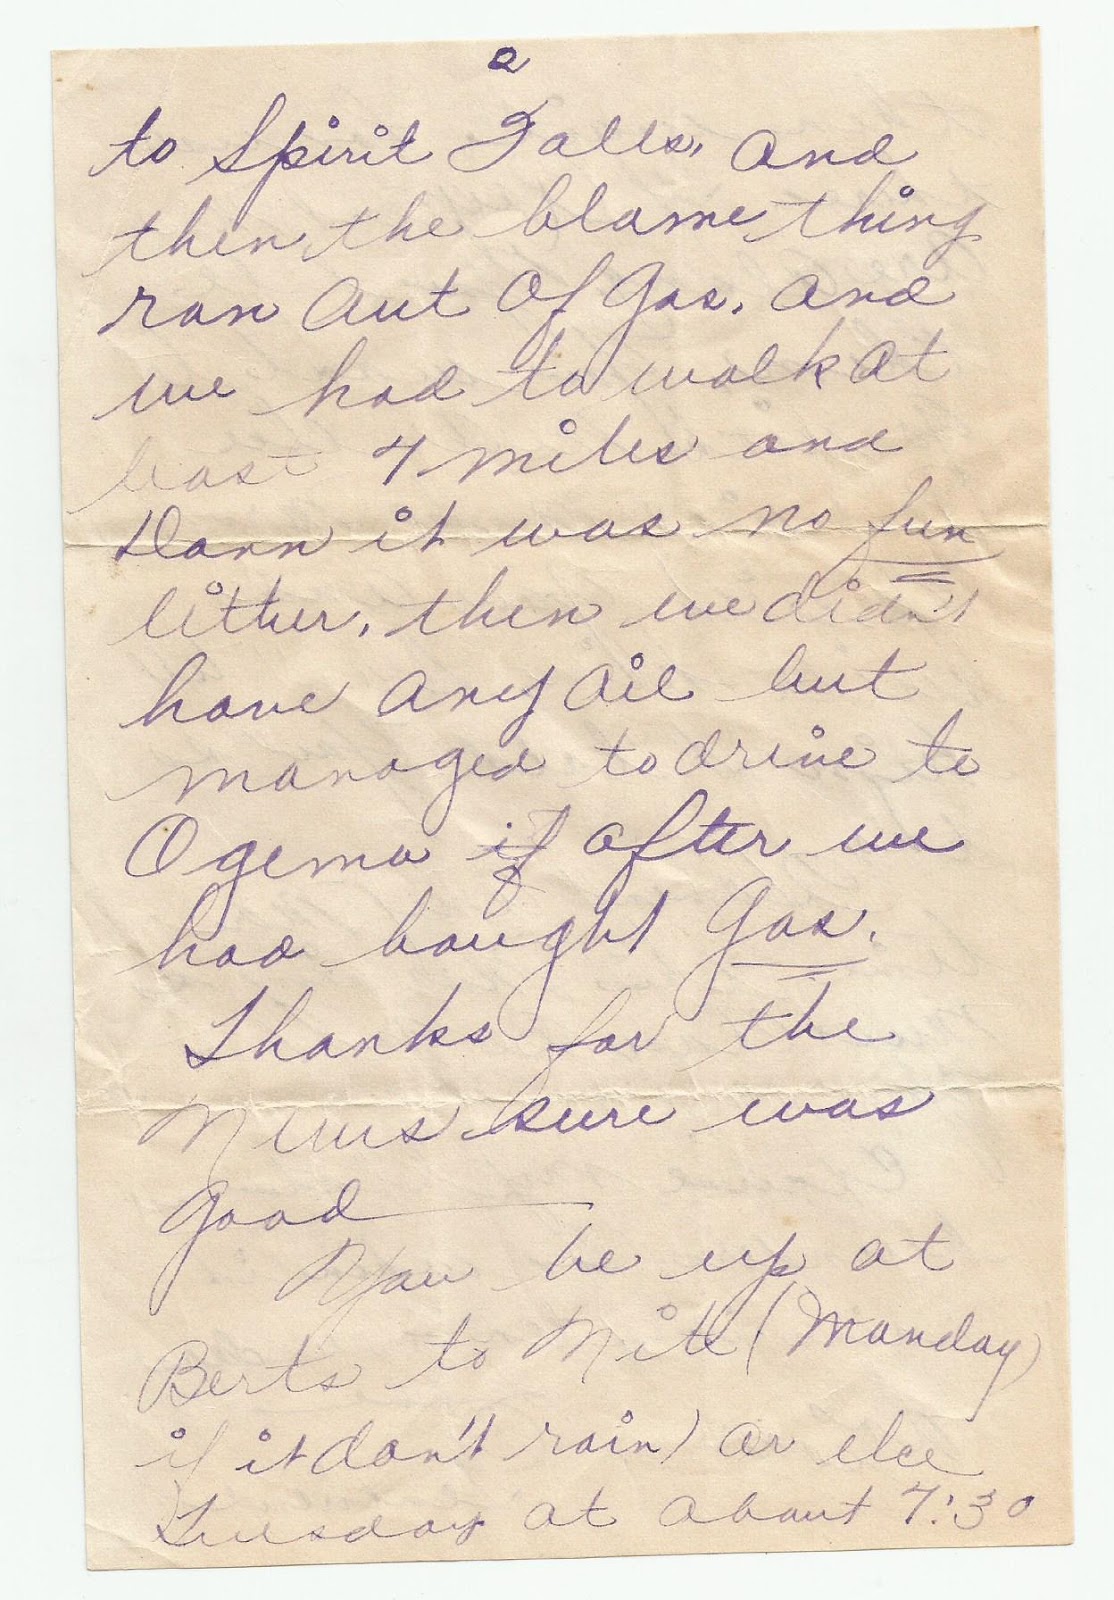 2
to Spirit Falls, and
then the blame thing
ran out of gas, and
we had to walk at
least 4 miles and
Darn it was no fun
either, then we didn't
have any oil but
managed to drive to
Ogema if after we
had bought gas.
Thanks for the
News sure was
good
You be up at
Berts to Nite (Monday
if it don't rain) or else
Tuesday at about 7:30